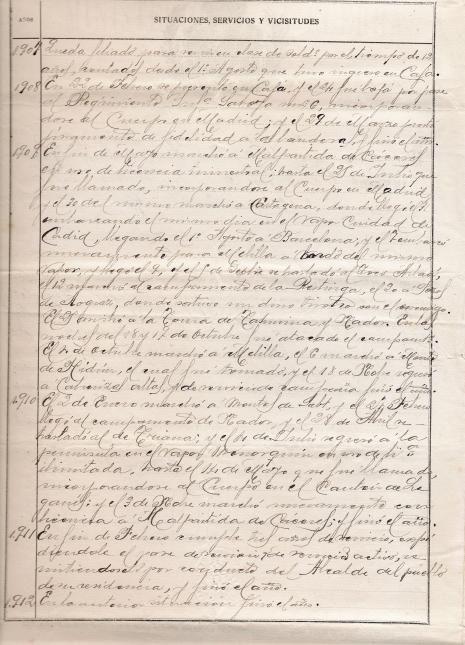 AÑOS SITUACIONES, SERVICIOS Y VICISITUDES
1907 Queda filiado para servir en clase de sold.º por el tiempo de 12
años, contados desde el 1º Agosto que tuvo ingreso en Caja.
1908 En de Febrero se presentó en Caja, y el 24 fue baja por pase
al Regimiento Inf.ª Saboya nº 6, incorporan
dose al Cuerpo en Madrid; y el 29 de Marzo prestó
juramento de fidelidad a la bandera, y finó el año.
1909 En fin de Mayo marchó á Malpartida de Cáceres
en uso de licencia hasta el 25 de Julio que
fue llamado, incorporandose al Cuerpo en Madrid
y el 30 del mismo marchó á Cartagena, donde llegó el
embarcando el mismo dia en el vapor Ciudad de
Cadid, llegando el 1º Agosto á Barcelona; y el
nuevamente para Melilla á bordo del mismo
vapor, y llegó el 7, el
el 12 marchó al campamento de la Restinga, el 20 a
de donde sostuvo un tiroteo con el enemigo.
El á la toma de Tahuima y Nador. En la
noche del 18 y 17 de Octubre fue atacado el campamto.
El de Octubre marchó á Melilla, el 6 marchó a Monte
de el cual fue tomado, y el 18 de Nbre regresó
a altas, de servicio de campaña finó el año.
1910 El 2 de Enero marchó á Montes de y el 29 Febrero
llegó al campamento de Nador, y el 28 de Abril se
trasladó al de y el de Julio regresó á la
peninsula en el vapor en uso de
ilimitada, hasta el 14 de que fue llamado,
incorporandose al Cuerpo en el Cantón de Le
ganés; y el 3 de Nbre marchó nuevamente con
licencia á Malpartida de Cáceres; y finó el año.
1911 En fin de Febrero cumple tres años de servicio, expi
diendole el pase de servicio activo, re
mitiendosele por conducto del Alcalde del pueblo
de su residencia, y finó el año.
1912 En la anterior situación finó el año.